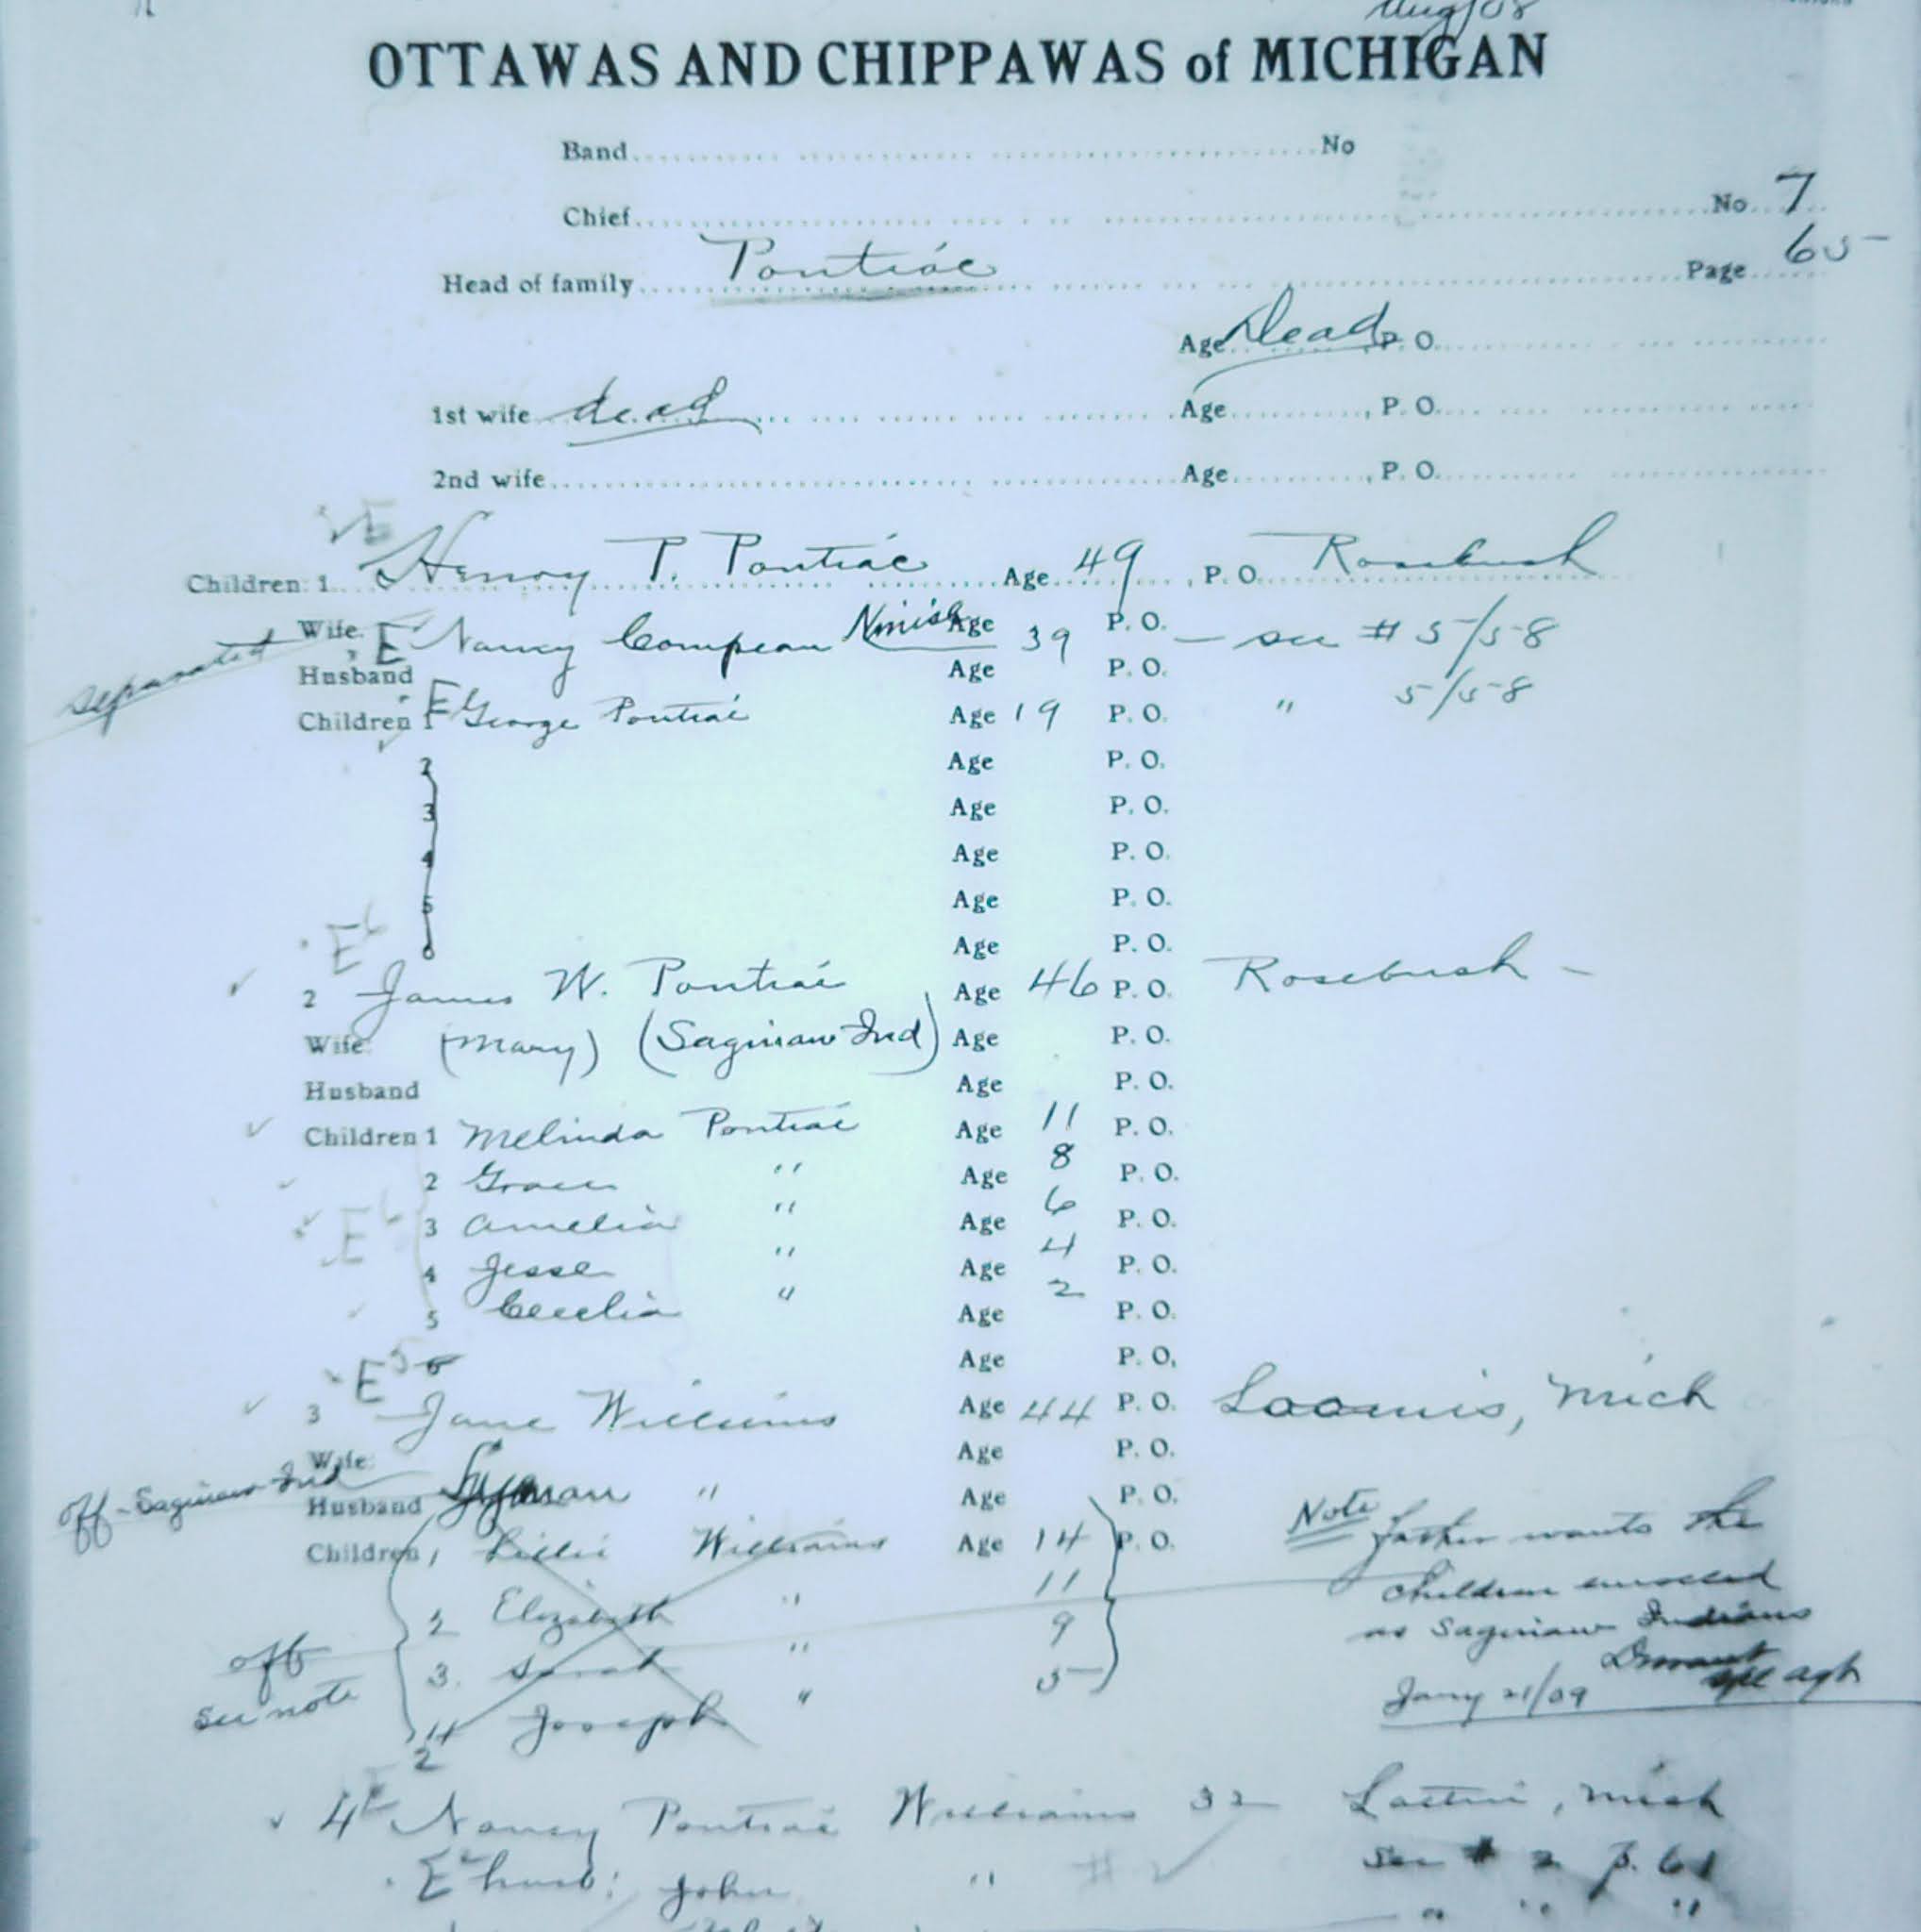 Aug/08
OTTAWAS AND CHIPPAWAS of MICHIGAN
Band No
Chief No 7
Head of family Pontiac Page 65
Age Dead P. O.
1st wife dead Age , P. O.
2nd wife Age , P. O.
Children: 1 Henry P. Pontiac Age 49 , P. O. Rosebush
separated Wife E Nancy Compeau Ninish Age 39 P. O. — see # 5/58
Husband Age P. O.
Children 1 E George Pontiac Age 19 P. O. " 5/58
2 Age P. O.
3 Age P. O.
4 Age P. O.
5 Age P. O.
6 Age P. O.
E
2 James W. Pontiac Age 46 P. O. Rosebush —
Wife (Mary) (Saginaw Ind) Age P. O.
Husband Age P. O.
Children 1 Melinda Pontiac Age 11 P. O.
2 Grace " Age 8 P. O.
E 3 Amelia " Age 6 P. O.
4 Jesse " Age 4 P. O.
5 Cecelia " Age 2 P. O.
E 6 Age P. O.
3 Jane Williams Age 44 P. O. Loomis, Mich
Wife Age P. O.
off - Saginaw Ind Husband Lyman " Age P. O.
Children 1 Lillie Williams Age 14 P. O.
2 Elizabeth " 11
3. Sarah " 9
4 Joseph " 5
off
see note
Note Father wants the
children enrolled
as Saginaw Indians
Durant
Spl agt
Jany 21/09
2
4 E Nancy Pontiac Williams 32 Mich
E husb; John " # 2 See # 2 p. 61
" " "